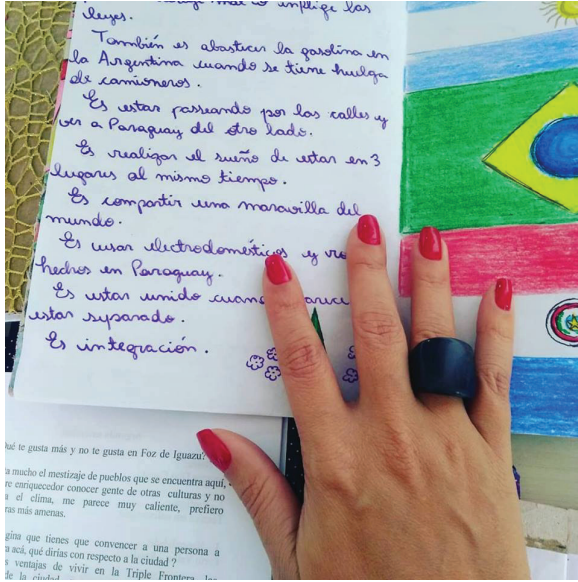 inflige las
leyes.
También es abastecer la gasolina en
la Argentina cuando se tiene huelga
de camioneros.
Es estar passeando por las calles y
ver a Paraguay del otro lado.
Es realizar el sueño de estar en 3
lugares al mismo tiempo.
Es compartir una maravilla del
mundo.
Es usar electrodomésticos y
hechos en Paraguay.
Es estar unido
estar separado.
Es integración.
te gusta más y no te gusta en Foz de Iguazu?
mucho el mestizaje de pueblos que se encuentra aquí,
enriquecedor conocer gente de otras culturas y no
el clima, me parece muy caliente, prefiero
más amenas.
que tienes que convencer a una persona a
acá, qué dirías con respecto a la ciudad ?
ventajas de vivir en la Triple Frontera
de la ciudad